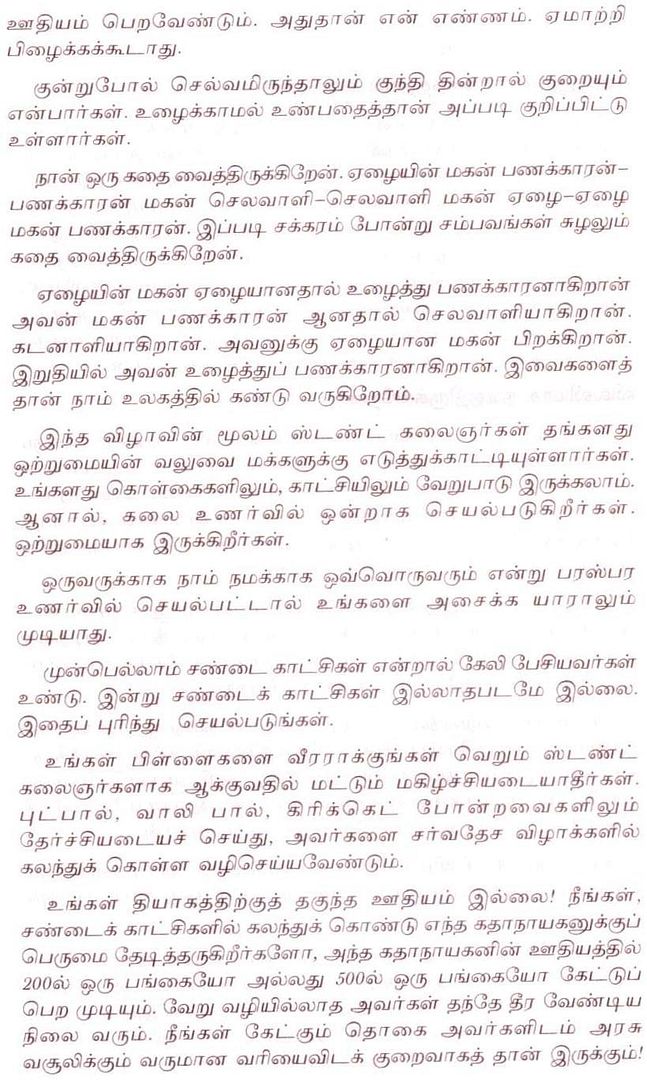 ஊதியம் பெறவேண்டும். அதுதான் என் எண்ணம். ஏமாற்றி
பிழைக்கக்கூடாது.
குன்றுபோல் செல்வமிருந்தாலும் குந்தி தின்றால் குறையும்
என்பார்கள். உழைக்காமல் உண்பதைத்தான் அப்படி குறிப்பிட்டு
உள்ளார்கள்.
நான் ஒரு கதை வைத்திருக்கிறேன். ஏழையின் மகன் பணக்காரன்–
பணக்காரன் மகன் செலவாளி–செலவாளி மகன் ஏழை–ஏழை
மகன் பணக்காரன். இப்படி சக்கரம் போன்று சம்பவங்கள் சுழலும்
கதை வைத்திருக்கிறேன்.
ஏழையின் மகன் ஏழையானதால் உழைத்து பணக்காரனாகிறான்
அவன் மகன் பணக்காரன் ஆனதால் செலவாளியாகிறான்.
கடனாளியாகிறான். அவனுக்கு ஏழையான மகன் பிறக்கிறான்.
இறுதியில் அவன் உழைத்துப் பணக்காரனாகிறான். இவைகளைத்
தான் நாம் உலகத்தில் கண்டு வருகிறோம்.
இந்த விழாவின் மூலம் ஸ்டண்ட் கலைஞர்கள் தங்களது
ஒற்றுமையின் வலுவை மக்களுக்கு எடுத்துக்காட்டியுள்ளார்கள்.
உங்களது கொள்கைகளிலும், காட்சியிலும் வேறுபாடு இருக்கலாம்.
ஆனால், கலை உணர்வில் ஒன்றாக செயல்படுகிறீர்கள்.
ஒற்றுமையாக இருக்கிறீர்கள்.
ஒருவருக்காக நாம் நமக்காக ஒவ்வொருவரும் என்று பரஸ்பர
உணர்வில் செயல்பட்டால் உங்களை அசைக்க யாராலும்
முடியாது.
முன்பெல்லாம் சண்டை காட்சிகள் என்றால் கேலி பேசியவர்கள்
உண்டு. இன்று சண்டைக் காட்சிகள் இல்லாதபடமே இல்லை.
இதைப் புரிந்து செயல்படுங்கள்.
உங்கள் பிள்ளைகளை வீரராக்குங்கள் வெறும் ஸ்டண்ட்
கலைஞர்களாக ஆக்குவதில் மட்டும் மகிழ்ச்சியடையாதீர்கள்.
புட்பால், வாலி பால், கிரிக்கெட் போன்றவைகளிலும்
தேர்ச்சியடையச் செய்து, அவர்களை சர்வதேச விழாக்களில்
கலந்துக் கொள்ள வழிசெய்யவேண்டும்.
உங்கள் தியாகத்திற்குத் தகுந்த ஊதியம் இல்லை! நீங்கள்,
சண்டைக் காட்சிகளில் கலந்துக் கொண்டு எந்த கதாநாயகனுக்குப்
பெருமை தேடித்தருகிறீர்களோ, அந்த கதாநாயகனின் ஊதியத்தில்
200ல் ஒரு பங்கையோ அல்லது 500ல் ஒரு பங்கையோ கேட்டுப்
பெற முடியும். வேறு வழியில்லாத அவர்கள் தந்தே தீர வேண்டிய
நிலை வரும். நீங்கள் கேட்கும் தொகை அவர்களிடம் அரசு
வசூலிக்கும் வருமான வரியைவிடக் குறைவாகத் தான் இருக்கும்!